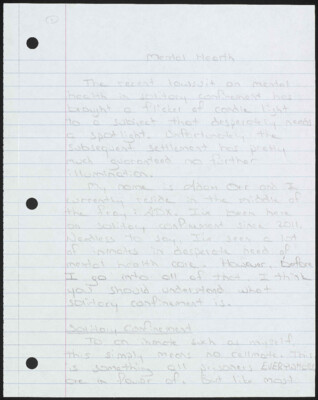 1
Mental Health
The recent lawsuit on mental
health & solitary confinement has
brought a flicker of candle light
to a subject that desperately needs
a spotlight. Unfortunately the
subsequent settlement has pretty
much guaranteed no further
illumination.
My name is and I
currently reside in the middle of
the I've been here
on solitary confinement since 2011.
Needless to say, I've seen a lot
of inmates in desperate need of
mental health care. However, before
I go into all of that I think
you should understand what
solitary confinement is.
Solitary Confinement
To an inmate such as myself
this simply means no cellmate. This
is something all prisoners
are in favor of, but like most